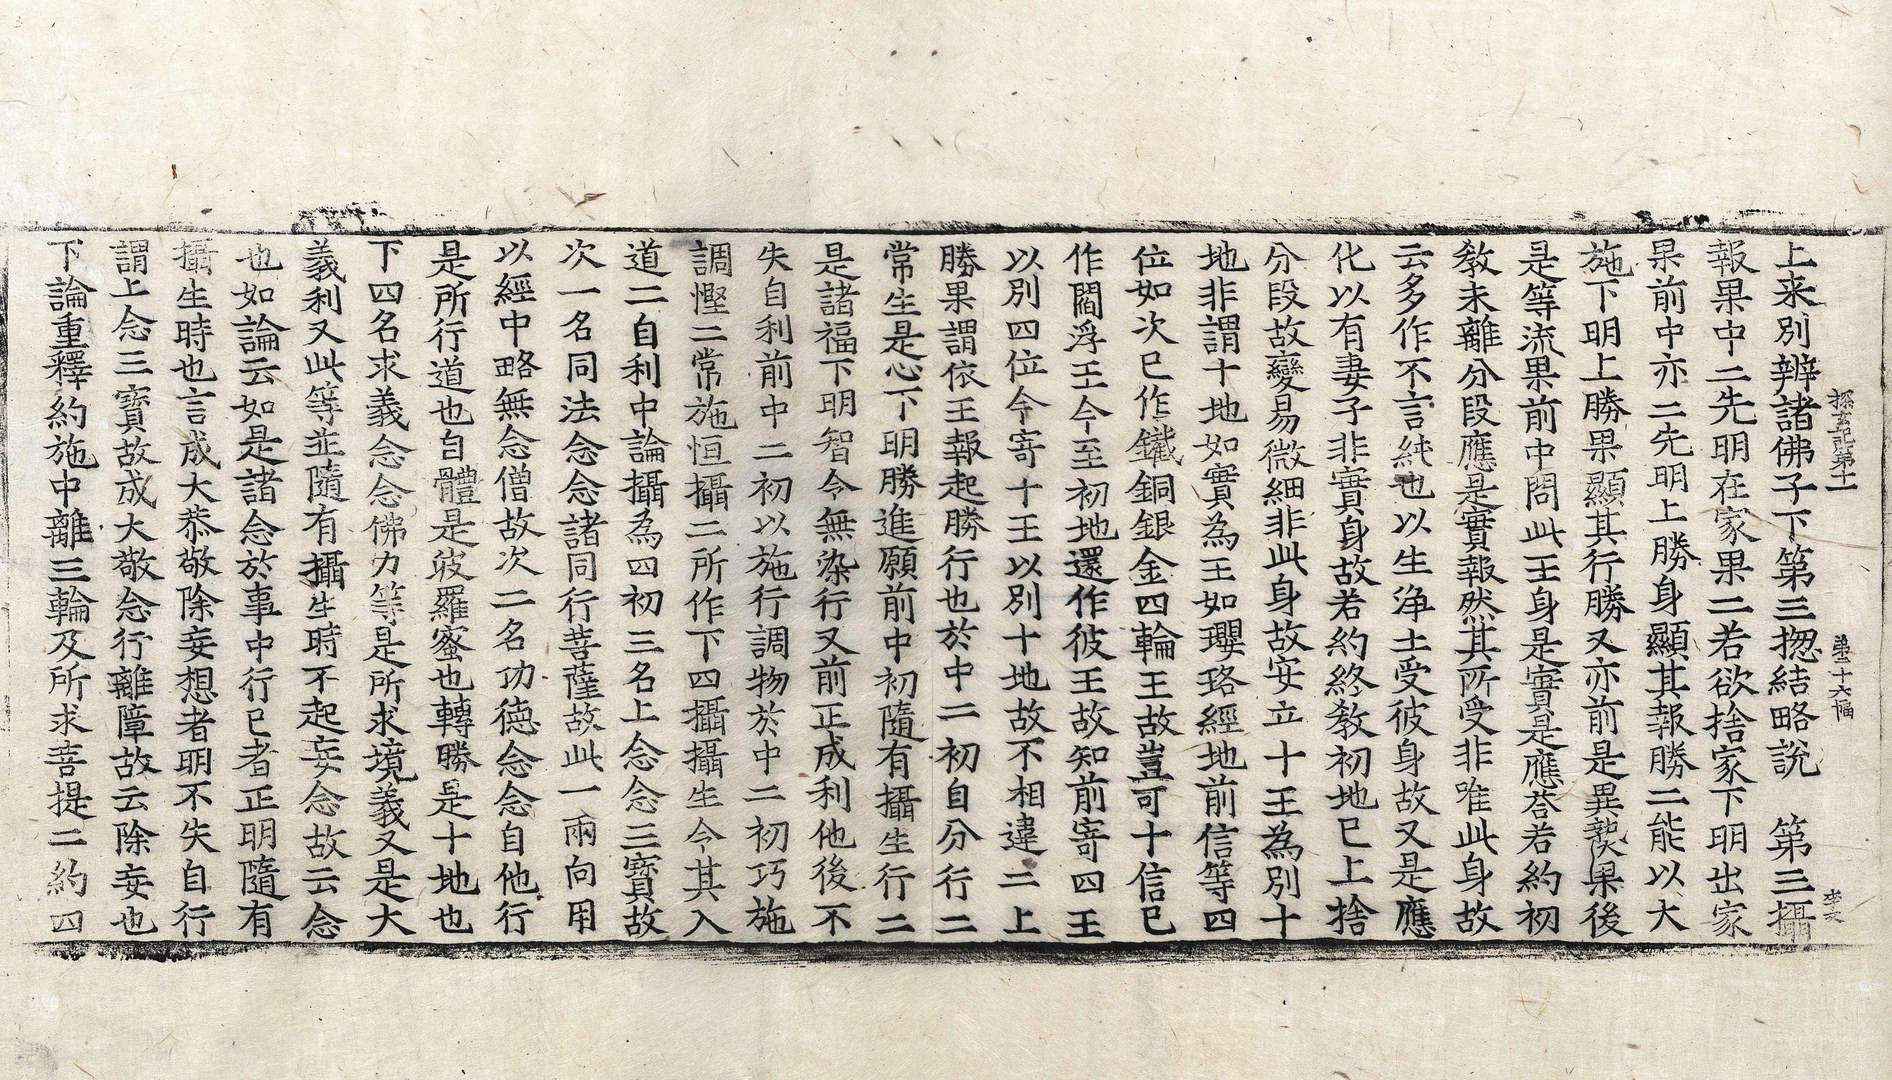 探玄記第十一　第二十六幅　李文
上来別辨諸佛子下第三揔結略說　第三攝
報果中二先明在家果二若欲捨家下明出家
果前中亦二先明上勝身顯其報勝二能以大
施下明上勝果顯其行勝又亦前是異熟果後
是等流果前中問此王身是實是應荅若約初
教未離分段應是實報然其所受非唯此身故
云多作不言純也以生淨土受彼身故又是應
化以有妻子非實身故若約終教初地已上捨
分段故變易微細非此身故安立十王為別十
地非謂十地如實為王如瓔珞經地前信等四
位如次已作鐵銅銀金四輪王故豈可十信已
作閻浮王今至初地還作彼王故知前寄四王
以別四位今寄十王以別十地故不相違二上
勝果謂依王報起勝行也於中二初自分行二
常生是心下明勝進願前中初隨有攝生行二
是諸福下明智令無染行又前正成利他後不
失自利前中二初以施行調物於中二初巧施
調慳二常施恒攝二所作下四攝攝生令其入
道二自利中論攝為四初三名上念念三寶故
次一名同法念念諸同行菩薩故此一兩向用
以經中略無念僧故次二名功德念念自他行
是所行道也自體是波羅蜜也轉勝是十地也
下四名求義念念佛力等是所求境義又是大
義利又此等並隨有攝生時不起妄念故云念
也如論云如是諸念於事中行已者正明隨有
攝生時也言成大恭敬除妄想者明不失自行
謂上念三寶故成大敬念行離障故云除妄也
下論重釋約施中離三輪及所求菩提二約四